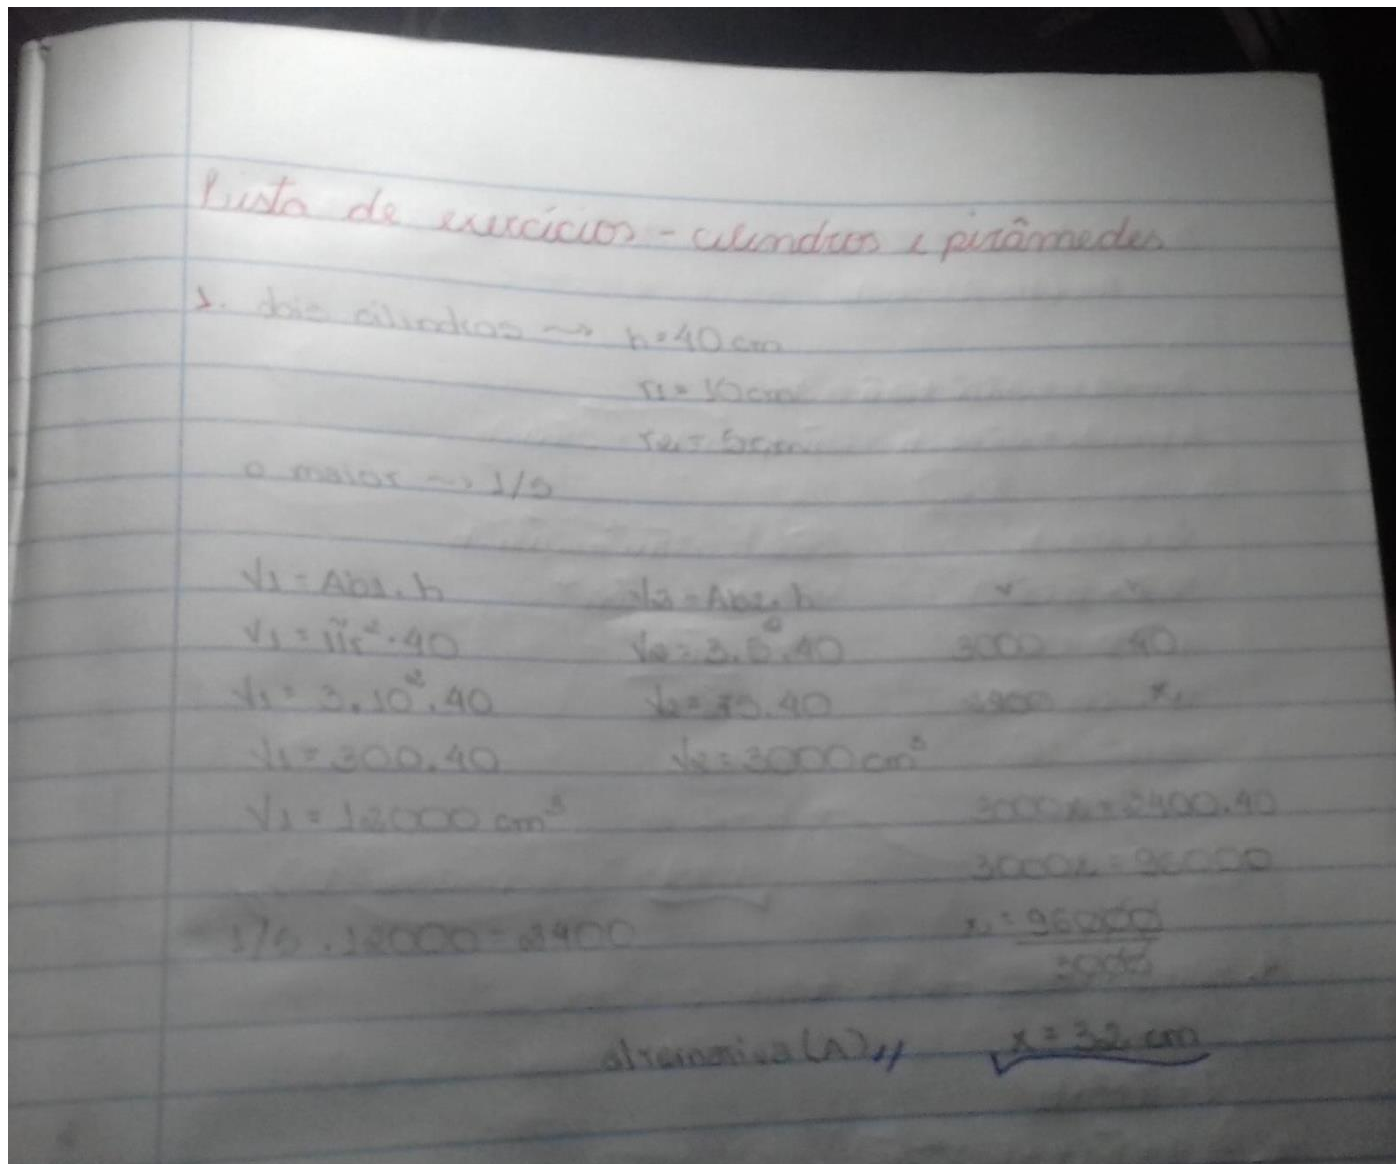 Lista de exercícios - cilindros e pirâmedes
1. dois cilindros ~> h=40cm
r1=10cm
r2=5cm
o maior ~> 1/5
V1=Ab1.h
V1=πr².40
V1=3.10².40
V1=300.40
V1=12000cm³
1/5.12000=2400
V2=Ab2.h
V2=3.5².40
V2=75.40
V2=3000cm³
3000 40
2400 x
3000x=2400.40
3000x=96000
x=96000
3000
x=32cm
alternativa(A)//